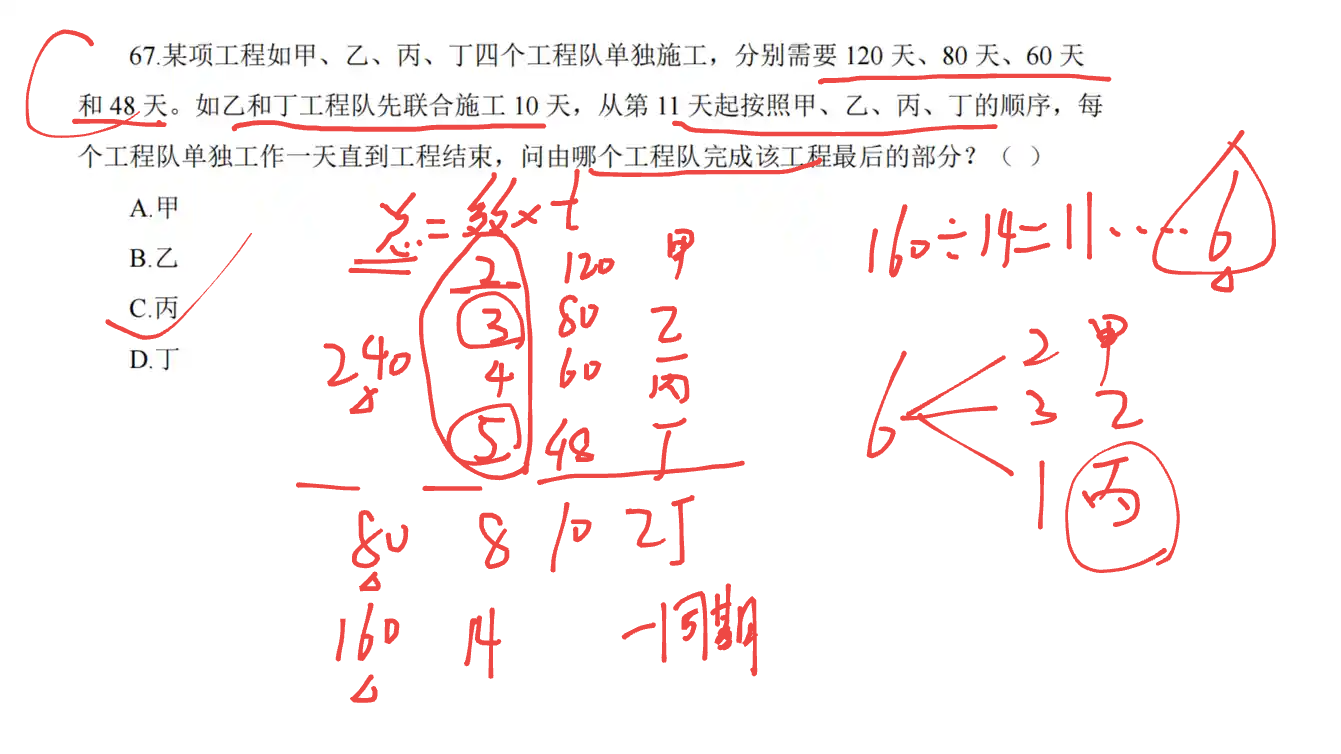 67.某项工程如甲、乙、丙、丁四个工程队单独施工，分别需要 120 天、80 天、60 天
和 48 天。如乙和丁工程队先联合施工 10 天，从第 11 天起按照甲、乙、丙、丁的顺序，每
个工程队单独工作一天直到工程结束，问由哪个工程队完成该工程最后的部分？（ ）
A.甲
B.乙
C.丙
D.丁
总=效×t
2 120 甲
3 80 乙
240 4 60 丙
5 48 丁
80 8 10 乙丁
160 14 一周期
160÷14=11……6
6 2 甲
3 乙
1 丙